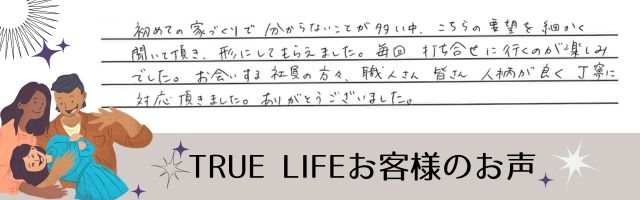 初めての家づくりで分からないことが多い中、こちらの要望を細かく
聞いて頂き、形にしてもらえました。毎回 打ち合せに行くのが楽しみ
でした。お会いする社員の方々、職人さん 皆さん 人柄が良く 丁寧に
対応頂きました。ありがとうございました。
TRUE LIFEお客様のお声